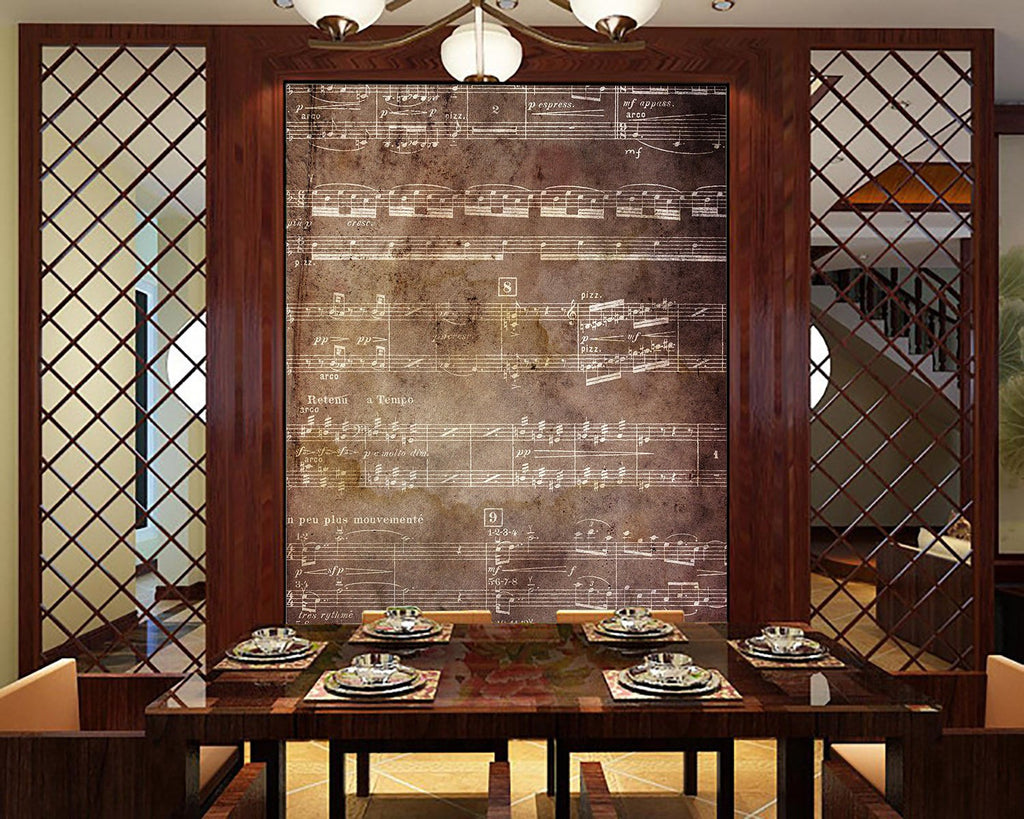 p p pizz. 2 p espress. mf appass.
arco arco
mf
cresc.
pizz.
8
pizz.
pp pp p mf
pizz.
arco
Retenu a Tempo
arco
sf sf sf p e molto dim. pp
arco
1
n peu plus mouvementé 9
1-2 1-2-3-4 3
p sfp mf f
3-4 5-6-7-8 3
très rythmé